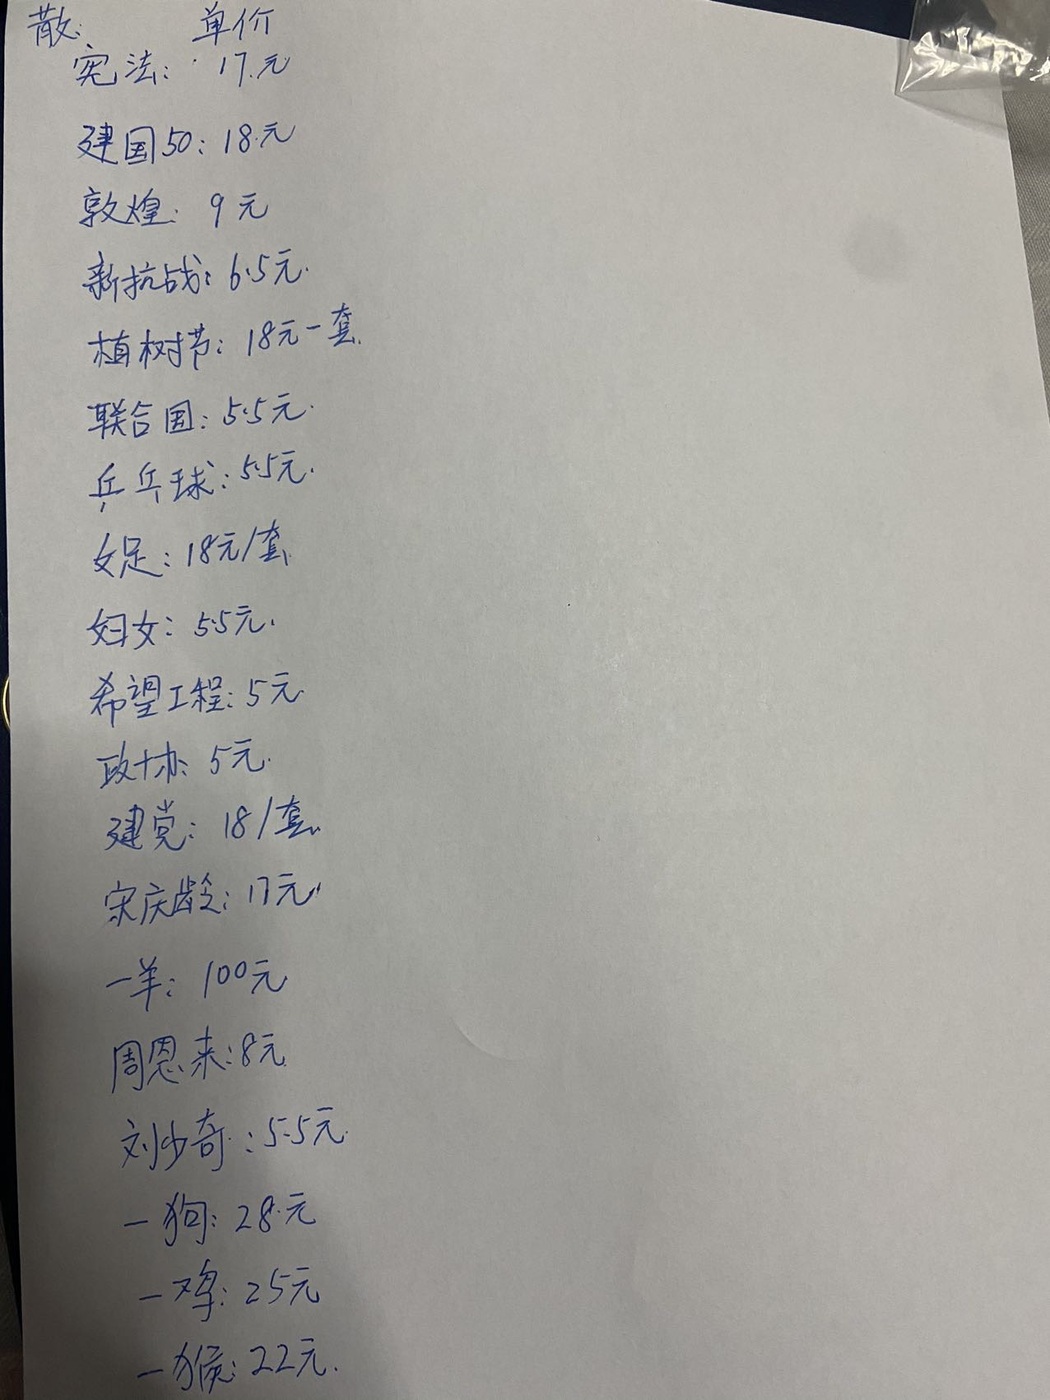 散: 单价
宪法: 17元
建国50: 18元
敦煌: 9元
新抗战: 6.5元.
植树节: 18元一套.
联合国: 5.5元.
乒乓球: 5.5元.
女足: 18元/套.
妇女: 5.5元.
希望工程: 5元.
政协: 5元.
建党: 18/套.
宋庆龄: 17元.
一羊: 100元
周恩来: 8元.
刘少奇: 5.5元.
一狗: 28元
一鸡: 25元
一猴: 22元.